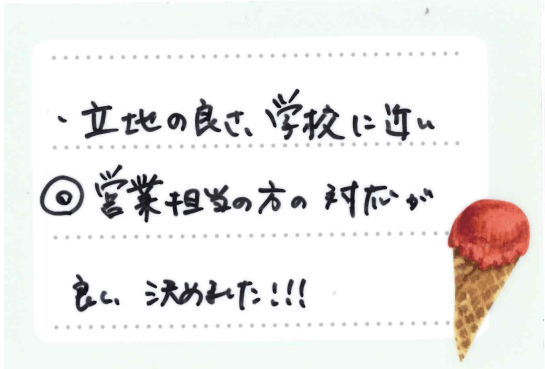 ・立地の良さ、学校に近い
◎営業担当の方の対応が
良く、決めました!!!